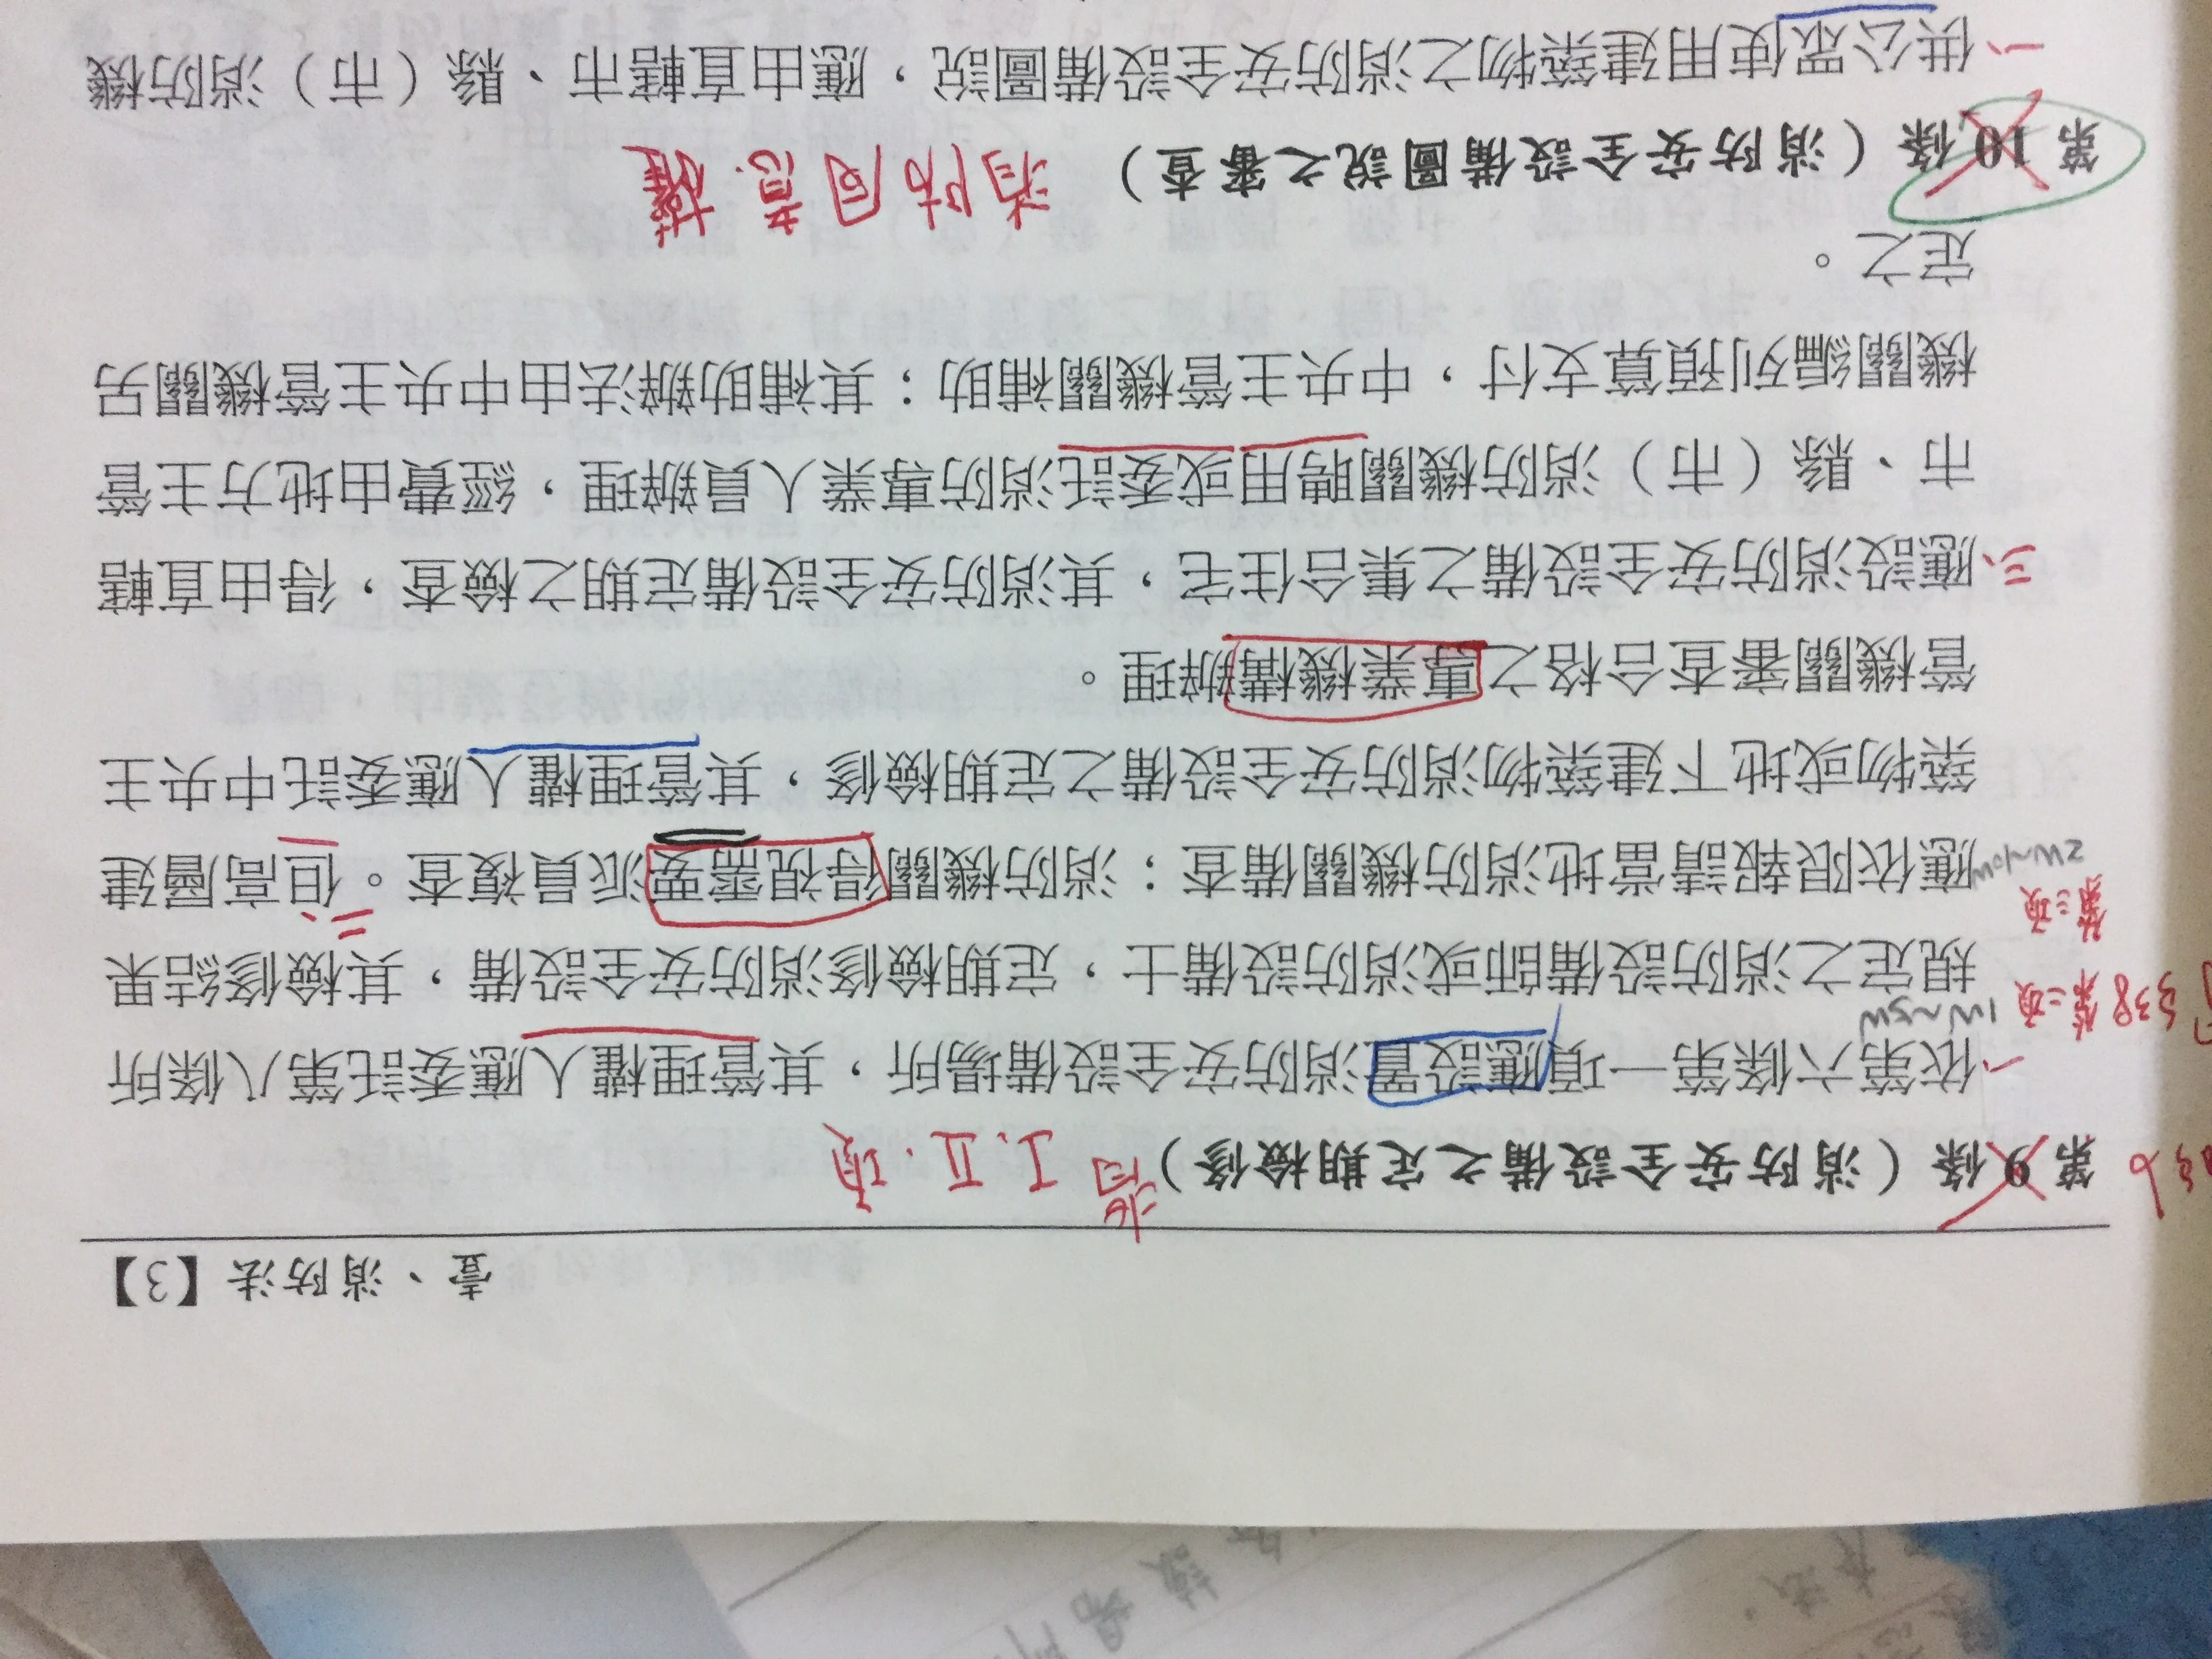 壹、消防法【3】
第9條（消防安全設備之定期檢修） 背 I、II、項
一、依第六條第一項應設置消防安全設備場所，其管理權人應委託第八條所
規定之消防設備師或消防設備士，定期檢修消防安全設備，其檢修結果
應依限報請當地消防機關備查；消防機關得視需要派員複查。但高層建
築物或地下建築物消防安全設備之定期檢修，其管理權人應委託中央主
管機關審查合格之專業機構辦理。
三、應設消防安全設備之集合住宅，其消防安全設備定期之檢查，得由直轄
市、縣（市）消防機關聘用或委託消防專業人員辦理，經費由地方主管
機關編列預算支付，中央主管機關補助；其補助辦法由中央主管機關另
定之。
第10條（消防安全設備圖說之審查） 消防同意權
一、供公眾使用建築物之消防安全設備圖說，應由直轄市、縣（市）消防機
§38 第二項
1W~5W
第三項
2W~10W
二、